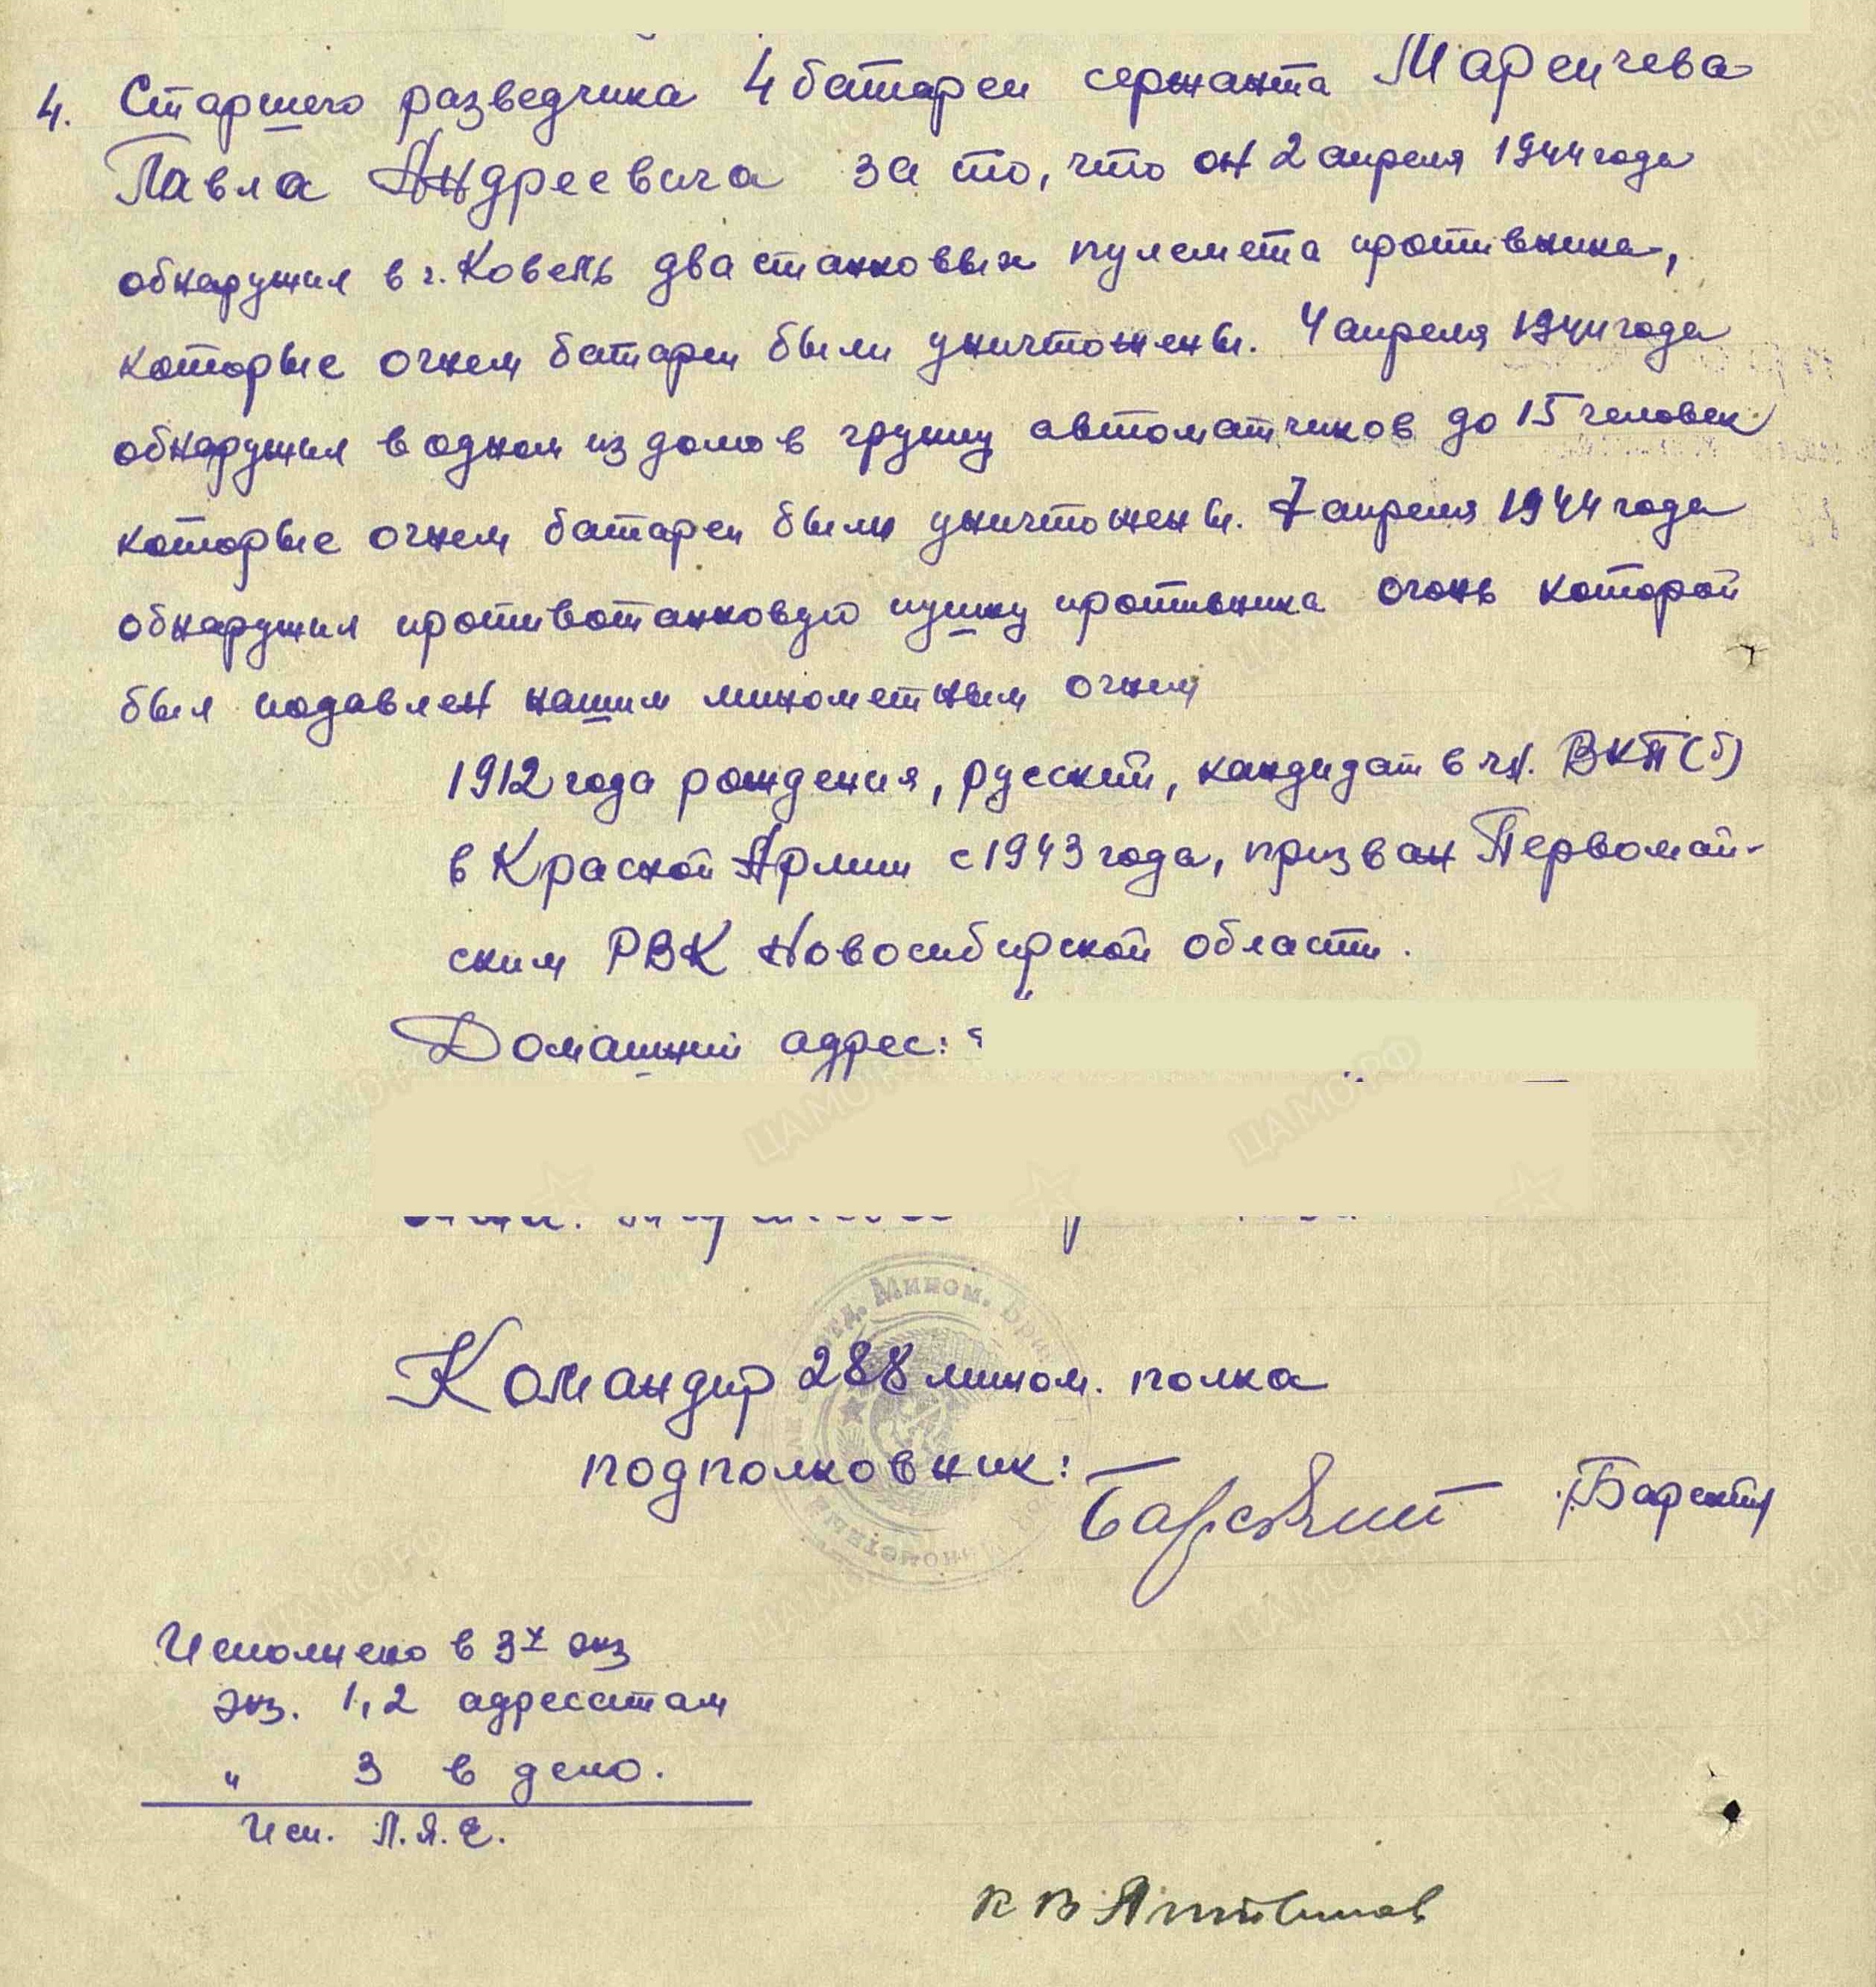 4. Старшего разведчика 4 батареи сержанта Маренчева
Павла Андреевича за то, что он 2 апреля 1944 года
обнаружил в г. Ковель два станковых пулемета противника,
которые огнем батареи были уничтожены. 4 апреля 1944 года
обнаружил в одном из домов группу автоматчиков до 15 человек
которые огнем батареи были уничтожены. 7 апреля 1944 года
обнаружил противотанковую пушку противника огонь которой
был подавлен нашим минометным огнем
1912 года рождения, русский, кандидат в чл. ВКП(б)
в Красной Армии с 1943 года, призван Первомай-
ским РВК Новосибирской области.
Домашний адрес:
отд. Мином. Бриг
Командир 288 мином. полка
подполковник: Барский /Барский/
Исполнено в 3х экз
экз. 1,2 адресатам
" 3 в дело.
Исп. Л.Я.Е.
ЦАМО.РФ